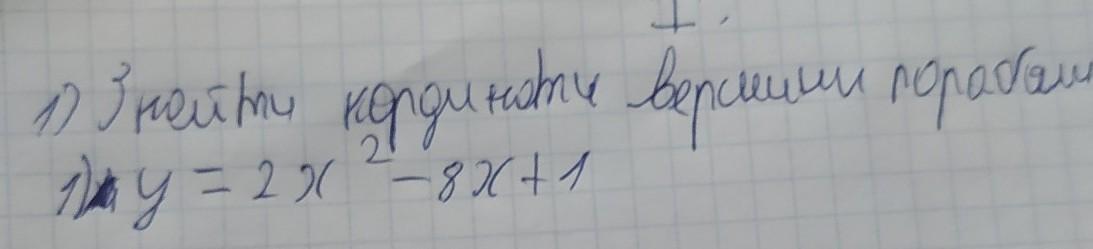 I.
1) Знайти кординати вершини порабали
1) y = 2x² - 8x + 1